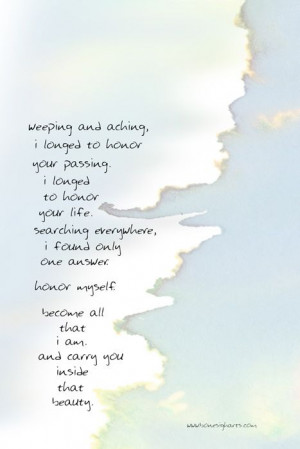 weeping and aching,
i longed to honor
your passing.
i longed
to honor
your life.
searching everywhere,
i found only
one answer.
honor myself.
become all
that
i am.
and carry you
inside
that
beauty.